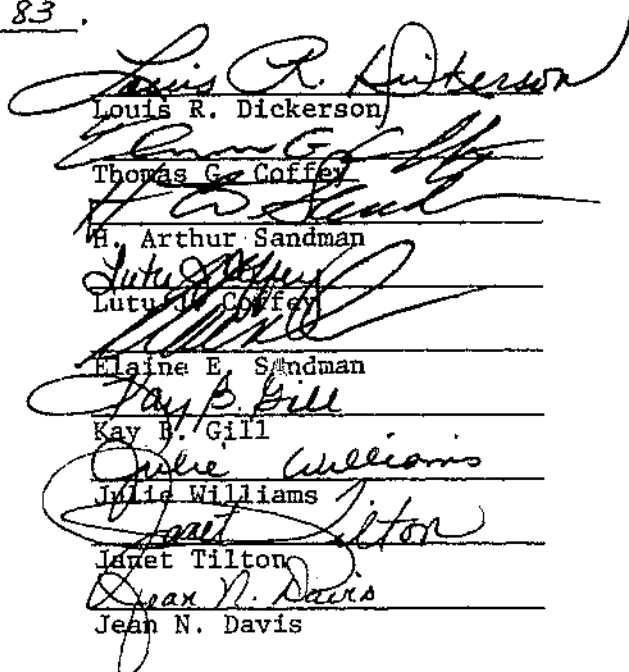 83.
Louis R. Dickerson
Louis R. Dickerson
Thomas G. Coffey
H. Arthur Sandman
Lutu J. Coffey
Elaine E. Sandman
Kay B. Gill
Kay B. Gill
Julie Williams
Julie Williams
Janet Tilton
Janet Tilton
Jean N. Davis
Jean N. Davis